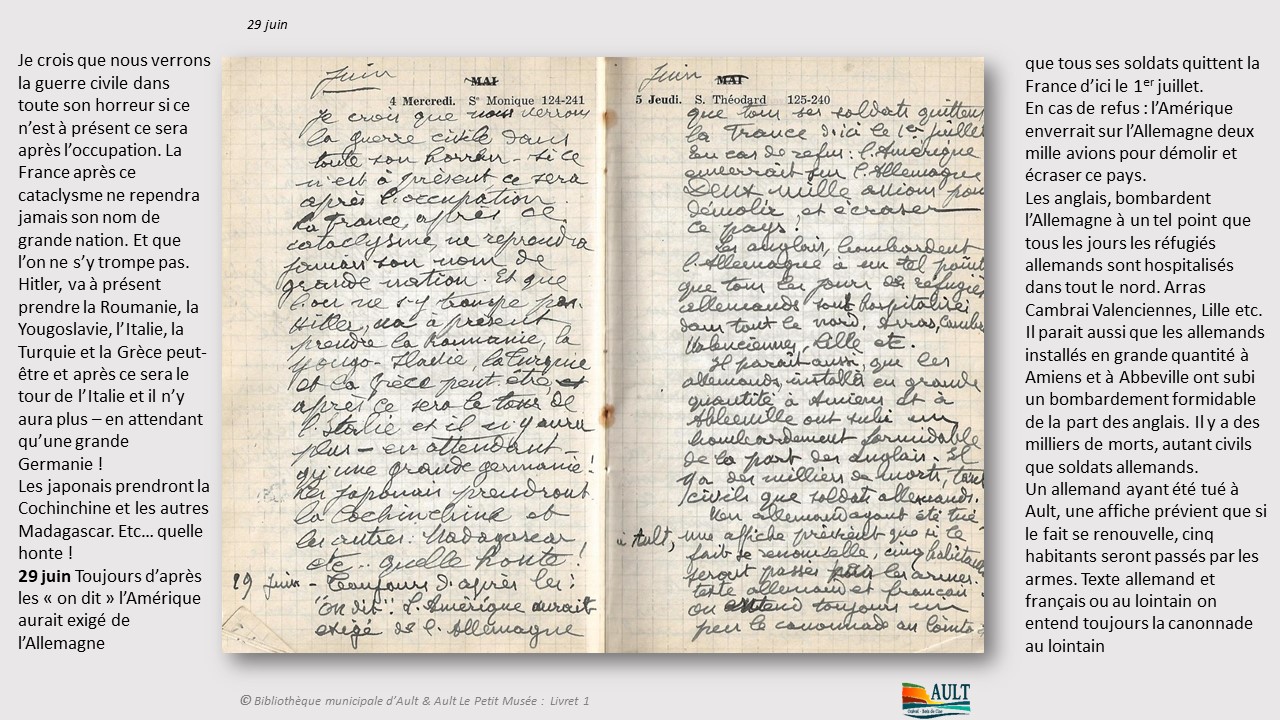 29 juin
Je crois que nous verrons
la guerre civile dans
toute son horreur si ce
n’est à présent ce sera
après l’occupation. La
France après ce
cataclysme ne rependra
jamais son nom de
grande nation. Et que
l’on ne s’y trompe pas.
Hitler, va à présent
prendre la Roumanie, la
Yougoslavie, l’Italie, la
Turquie et la Grèce peut-
être et après ce sera le
tour de l’Italie et il n’y
aura plus – en attendant
qu’une grande
Germanie !
Les japonais prendront la
Cochinchine et les autres
Madagascar. Etc… quelle
honte !
29 juin Toujours d’après
les « on dit » l’Amérique
aurait exigé de
l’Allemagne
Juin
MAI
4 Mercredi. Se Monique 124-241
Je crois que nous verrons
la guerre civile dans
toute son horreur - si ce
n'est à présent ce sera
après l'occupation.
La France, après ce
cataclysme, ne reprendra
jamais son nom de
grande nation. Et que
l'on ne s'y trompe pas.
Hitler, va à présent
prendre la Roumanie, la
Yougo-slavie, la turquie
et la Grèce peut être et
après ce sera le tour de
l'Italie et il n'y aura
plus - en attendant -
qu'une grande germanie !
Les Japonais prendront
la Cochinchine et
les autres : Madagascar,
etc.. quelle honte !
29 Juin - Toujours d'après les :
"on dit" l'Amérique aurait
exigé de l'Allemagne
Juin
MAI
5 Jeudi. S. Théodard 125-240
que tous ses soldats quittent
la France d'ici le 1er juillet
En cas de refus : l'Amérique
enverrait sur l'Allemagne
deux mille avions pour
démolir, et écraser
ce pays.
Les anglais, bombardent
l'Allemagne à un tel point
que tous les jours des réfugiés
allemands sont hospitalisés
dans tout le nord. Arras, Cambrai
Valenciennes, Lille etc.
Il parait aussi, que les
allemands, installés en grande
quantité à Amiens et à
Abbeville ont subi un
bombardement formidable
de la part des anglais. Il
y a des milliers de morts, tant
civils que soldats allemands.
Un allemand ayant été tué
à Ault, une affiche prévient que si le
fait se renouvelle, cinq habitants
seront passés par les armes.
texte allemand et français
on entend toujours un
peu la canonnade au lointain
que tous ses soldats quittent la
France d’ici le 1er juillet.
En cas de refus : l’Amérique
enverrait sur l’Allemagne deux
mille avions pour démolir et
écraser ce pays.
Les anglais, bombardent
l’Allemagne à un tel point que
tous les jours les réfugiés
allemands sont hospitalisés
dans tout le nord. Arras
Cambrai Valenciennes, Lille etc.
Il parait aussi que les allemands
installés en grande quantité à
Amiens et à Abbeville ont subi
un bombardement formidable
de la part des anglais. Il y a des
milliers de morts, autant civils
que soldats allemands.
Un allemand ayant été tué à
Ault, une affiche prévient que si
le fait se renouvelle, cinq
habitants seront passés par les
armes. Texte allemand et
français ou au lointain on
entend toujours la canonnade
au lointain
© Bibliothèque municipale d’Ault & Ault Le Petit Musée : Livret 1
AULT